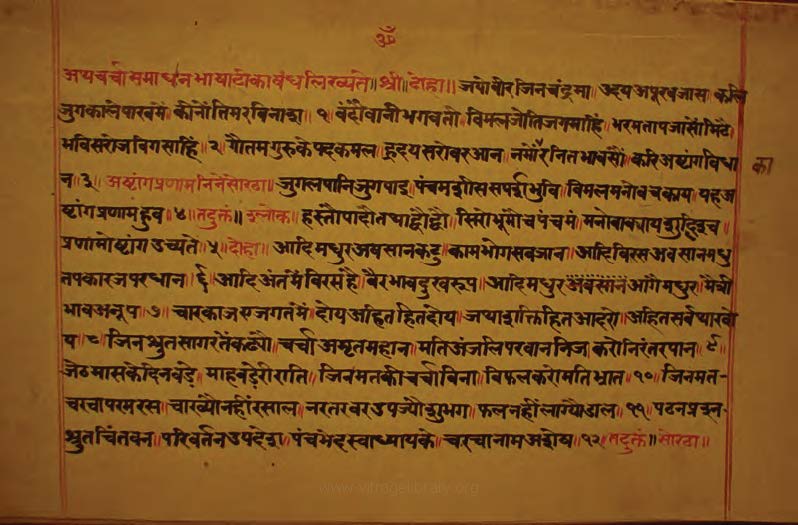 ॐ
अथ चर्चा समाधान भाषा टीका बंध लिख्यते ॥ श्री ॥ दोहा ॥ जयो वीर जिन चंद्रमा ॥ उदय अपूरव जास ॥ कलि
जुग काले पाख में ॥ कीनों तिमर विनाश ॥ १ ॥ वंदौं वानी भगवती ॥ विमल जोति जगमाहिं ॥ भरम ताप जासौं मिटै ॥
भवि सरोज विगसाहिं ॥ २ ॥ गौतम गुरु के पद कमल ॥ हृदय सरोवर आन ॥ नमौं नित भाव सौं ॥ करि अष्टांग विधा
का
न ॥ ३ ॥ अष्टांग प्रणाम ॥ सोरठा ॥ जुगल पानि जुग पाइ ॥ पंचम शीस सपर्श भुवि ॥ विमल मनो वच काय ॥ यह अ
ष्टांग प्रणाम हुव ॥ ४ ॥ तदुक्तं ॥ श्लोक ॥ हस्तौ पादौ तथा द्वौ द्वौ ॥ सिरो भूमौ च पंचमं ॥ मनो वाक्काय शुद्धिश्च ॥
प्रणामोष्टांग उच्यते ॥ ५ ॥ दोहा ॥ आदि मधुर अवसान कटु ॥ काम भोग सब जान ॥ आदि विरस अवसान मधु
तपकारज परधान ॥ ६ ॥ आदि अंत में विरस है ॥ वैर भाव दुख रूप ॥ आदि मधुर अवसान आगै मधुर ॥ मैत्री
भाव अनूप ॥ ७ ॥ चार काज ए जगत में ॥ दोय अहित हित दोय ॥ जथा शक्ति हित आदरो ॥ अहित सर्वथा खो
य ॥ ८ ॥ जिन श्रुत सागर तें कढ्यौ ॥ चर्चा अमृत महान ॥ मति अंजलि परवान निज ॥ करो निरंतर पान ॥ ९ ॥
जेठ मास के दिन बडे ॥ माह बडेरी राति ॥ जिन मत की चर्चा विना ॥ विफल करो मति भ्रात ॥ १० ॥ जिन मत-
चरचा परम रस ॥ चाख्यौ नहीं रसाल ॥ नर तरवर उपज्यौ अशुभग ॥ फल नहीं लाग्यौ डाल ॥ ११ ॥ पठन प्रश्न-
श्रुत चिंतवन ॥ परिवर्तन उपदेश ॥ पंच भेद स्वाध्याय के ॥ चरचा नाम अशेष ॥ १२ ॥ तदुक्तं ॥ सोरठा ॥
www.vitragelibrary.org